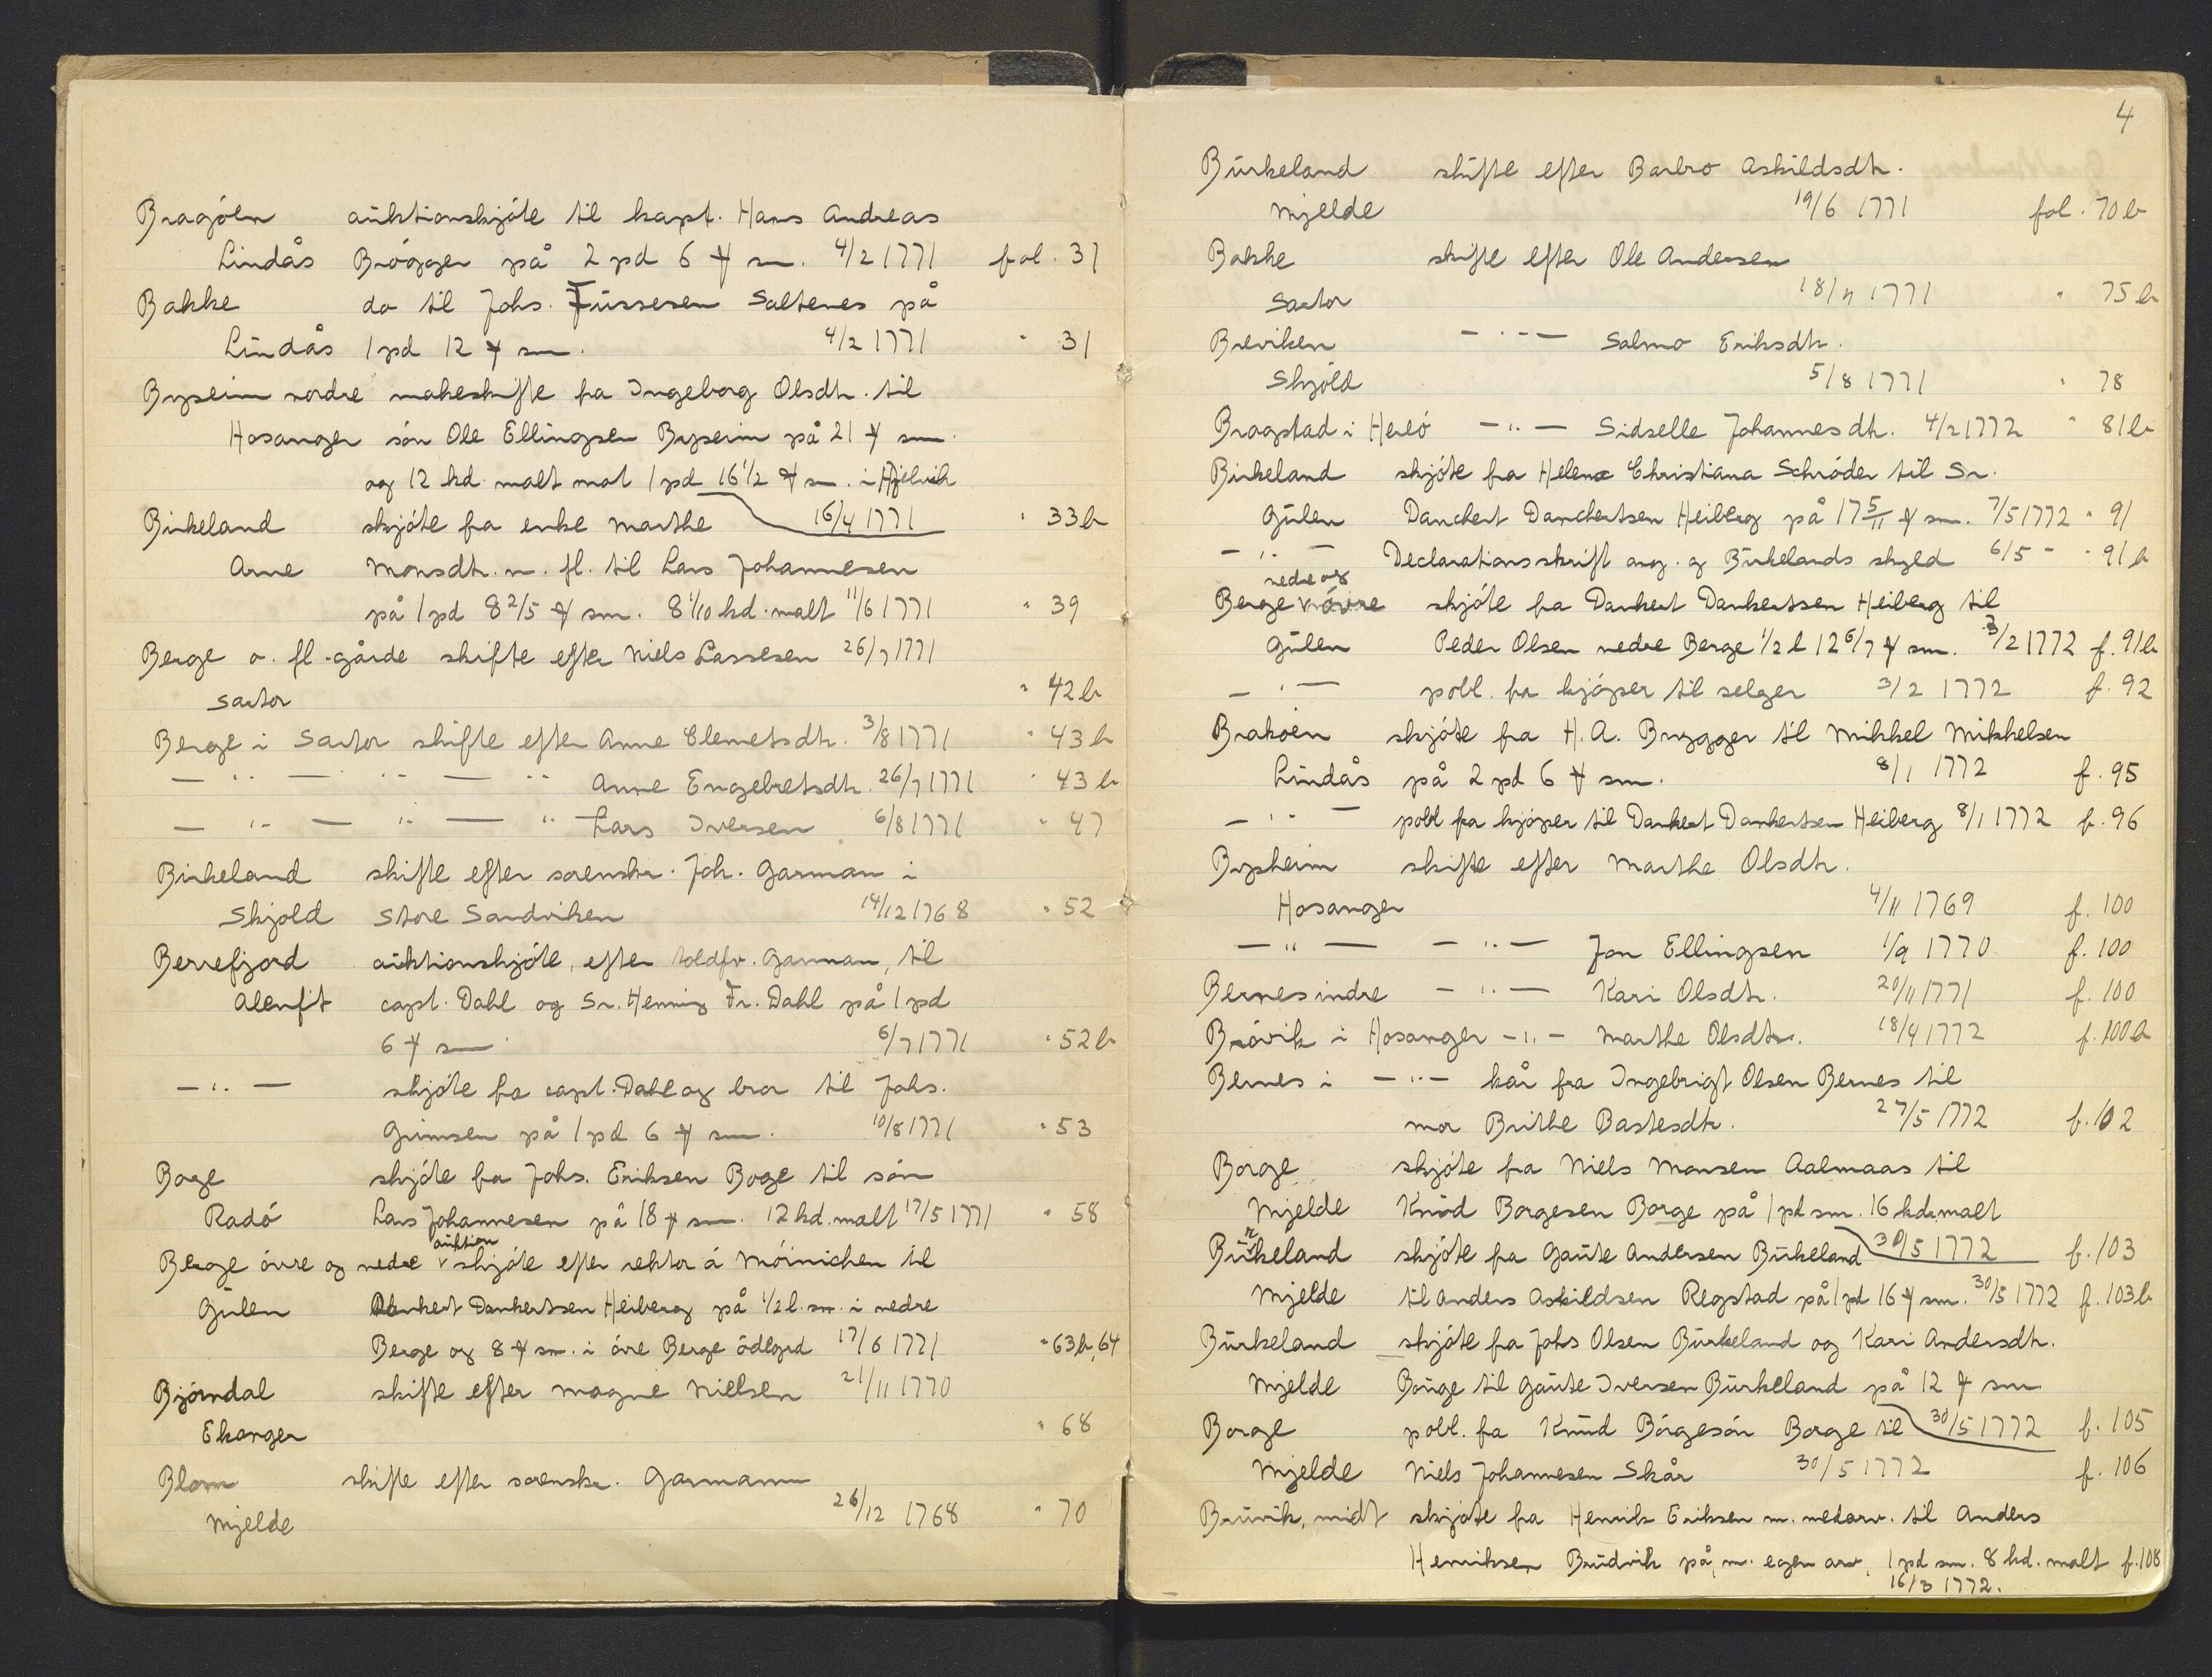 Bragóen auktionskjóte til kapt. Hans Andreas
Lindås Brógger på 2 pd 6 ℔ sm. 4/2 1771 fol. 31
Bakke do til Johs. Fussesen Saltenes på
Lindås 1 pd 12 ℔ sm. 4/2 1771 " 31
Byseim nordre makeskifte fra Ingeborg Olsdtr. til
Hosanger són Ole Ellingsen Byseim på 21 ℔ sm.
og 12 kd. malt mot 1 pd 16 1/2 ℔ sm. i Hjelvik
Birkeland skjóte fra enke Marthe 16/4 1771 " 33b
Arne Monsdtr. m. fl. til Lars Johannesen
på 1 pd 8 2/5 ℔ sm. 8 1/10 kd. malt 11/6 1771 " 39
Berge o. fl. gårde skifte efter Niels Lassesen 26/7 1771
Sartor " 42b
Berge i Sartor skifte efter Anne Clemetsdtr. 3/8 1771 " 43b
— " — " — " Anne Engebretsdtr. 26/7 1771 " 43b
— " — " — " Lars Iversen 6/8 1771 " 47
Birkeland skifte efter sorenskr. Joh. Garman i
Skjold Store Sandviken 14/12 1768 " 52
Berrefjord auktionskjóte, efter toldfv. Garman, til
Alenfit capt. Dahl og Sr. Henning Fr. Dahl på 1 pd
6 ℔ sm. 6/7 1771 " 52b
— " — skjóte fra capt. Dahl og bror til Johs.
Grimsen på 1 pd 6 ℔ sm. 10/8 1771 " 53
Boge skjóte fra Johs. Eriksen Boge til són
Radó Lars Johannesen på 18 ℔ sm. 12 kd. malt 17/5 1771 " 58
Berge óvre og nedre auktion skjóte efter rektor á Móinichen til
Gulen Dankert Dankertsen Heiberg på 1/2 l. sm. i nedre
Berge og 8 ℔ sm. i óvre Berge ódegrd 17/6 1771 " 63b, 64
Bjórndal skifte efter Magne Nielsen 21/11 1770
Ekanger " 68
Blom skifte efter sorenskr. Garmann
Mjelde 26/12 1768 " 70
4
Burkeland skifte efter Barbro Askildsdtr.
Mjelde 19/6 1771 fol. 70b
Bakke skifte efter Ole Andersen
Sartor 18/7 1771 " 75b
Breviken — " — Salmo Eriksdtr.
Skjóld 5/8 1771 " 78
Bragstad i Herló — " — Sidselle Johannesdtr. 4/2 1772 " 81b
Birkeland skjóte fra Helena Christiana Schróder til Sr.
Gulen Danchert Danchertsen Heiberg på 17 5/11 ℔ sm. 7/5 1772 " 91
— " — Declarationsskrift ang. og Birkelands skyld 6/5 – " 91b
Berge nedre og óvre skjóte fra Dankert Dankertsen Heiberg til
Gulen Peder Olsen nedre Berge 1/2 l 12 6/7 ℔ sm. 3/2 1772 f. 91b
— " — pobl. fra kjóper til selger 3/2 1772 f. 92
Brakoen skjóte fra H. A. Brygger til Mikkel Mikkelsen
Lindås på 2 pd 6 ℔ sm. 8/1 1772 f. 95
— " — pobl fra kjóper til Dankert Dankertsen Heiberg 8/1 1772 f. 96
Bysheim skifte efter Marthe Olsdtr.
Hosanger 4/11 1769 f. 100
— " — — " — Jon Ellingsen 1/9 1770 f. 100
Bernes indre — " — Kari Olsdtr. 20/11 1771 f. 100
Bróvik i Hosanger — " — Marthe Olsdtr. 18/4 1772 f. 100b
Bernes i — " — kår fra Ingebrigt Olsen Bernes til
mor Brithe Bastesdtr. 27/5 1772 f. 102
Borge skjóte fra Niels Monsen Aalmaas til
Mjelde Knud Borgesen Borge på 1 pd sm. 16 kdr malt
Burkeland skjóte fra Gaute Andersen Burkeland 30/5 1772 f. 103
Mjelde til Anders Askildsen Regstad på 1 pd 16 ℔ sm. 30/5 1772 f. 103b
Burkeland skjóte fra Johs Olsen Burkeland og Kari Andersdtr.
Mjelde Bouge til Gaute Iversen Burkeland på 12 ℔ sm
Borge pobl. fra Knud Bórgesón Borge til 30/5 1772 f. 105
Mjelde Niels Johannesen Skår 30/5 1772 f. 106
Bruvik, midt skjóte fra Henrik Eriksen m. medarv. til Anders
Henriksen Brudvik på, m. egen arv, 1 pd sm. 8 kd. malt f. 108
16/3 1772.